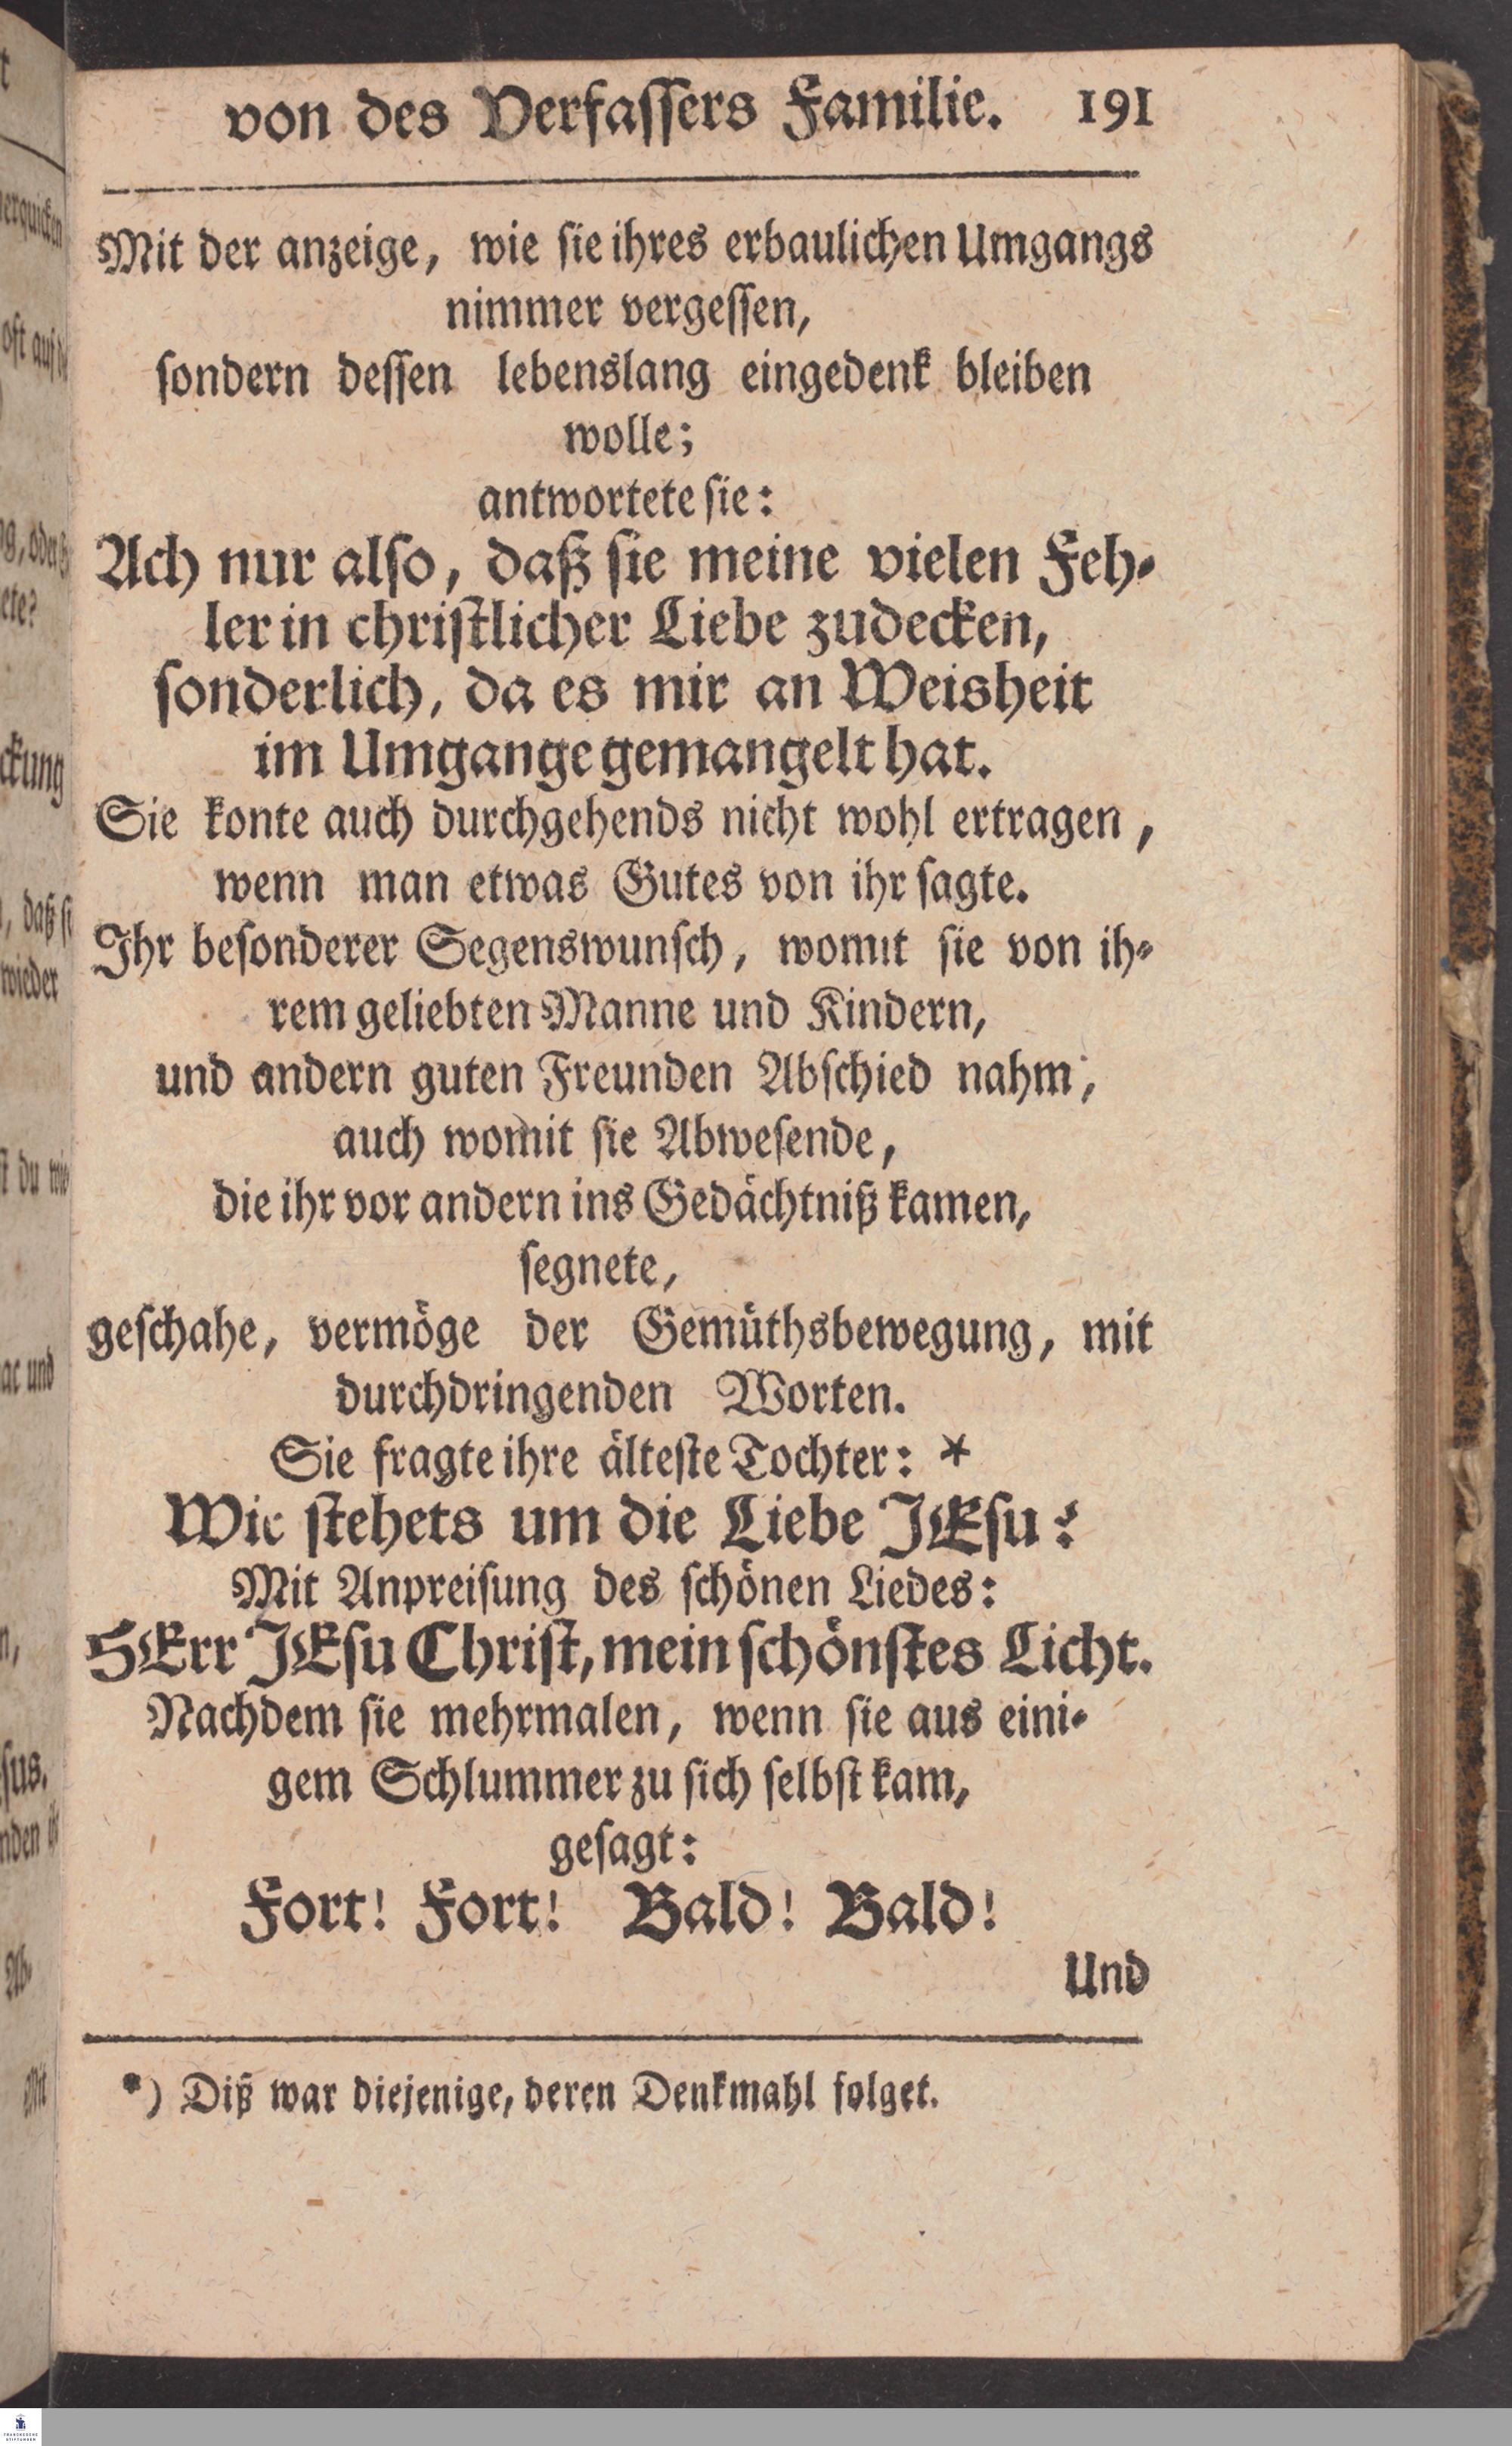 von des Verfaſſers Familie. 191
Mit der anzeige, wie ſie ihres erbaulichen Umgangs
nimmer vergeſſen,
ſondern deſſen lebenslang eingedenk bleiben
wolle;
antwortete ſie:
Ach nur alſo, daß ſie meine vielen Feh-
ler in chriſtlicher Liebe zudecken,
ſonderlich, da es mir an Weisheit
im Umgange gemangelt hat.
Sie konte auch durchgehends nicht wohl ertragen,
wenn man etwas Gutes von ihr ſagte.
Ihr beſonderer Segenswunſch, womit ſie von ih-
rem geliebten Manne und Kindern,
und andern guten Freunden Abſchied nahm,
auch womit ſie Abweſende,
die ihr vor andern ins Gedächtniß kamen,
ſegnete,
geſchahe, vermöge der Gemüthsbewegung, mit
durchdringenden Worten.
Sie fragte ihre älteſte Tochter: *
Wie ſtehets um die Liebe JEſu?
Mit Anpreiſung des ſchönen Liedes:
HErr JEſu Chriſt, mein ſchönſtes Licht.
Nachdem ſie mehrmalen, wenn ſie aus eini-
gem Schlummer zu ſich ſelbſt kam,
geſagt:
Fort! Fort! Bald! Bald!
Und
*) Diß war diejenige, deren Denkmahl folget.